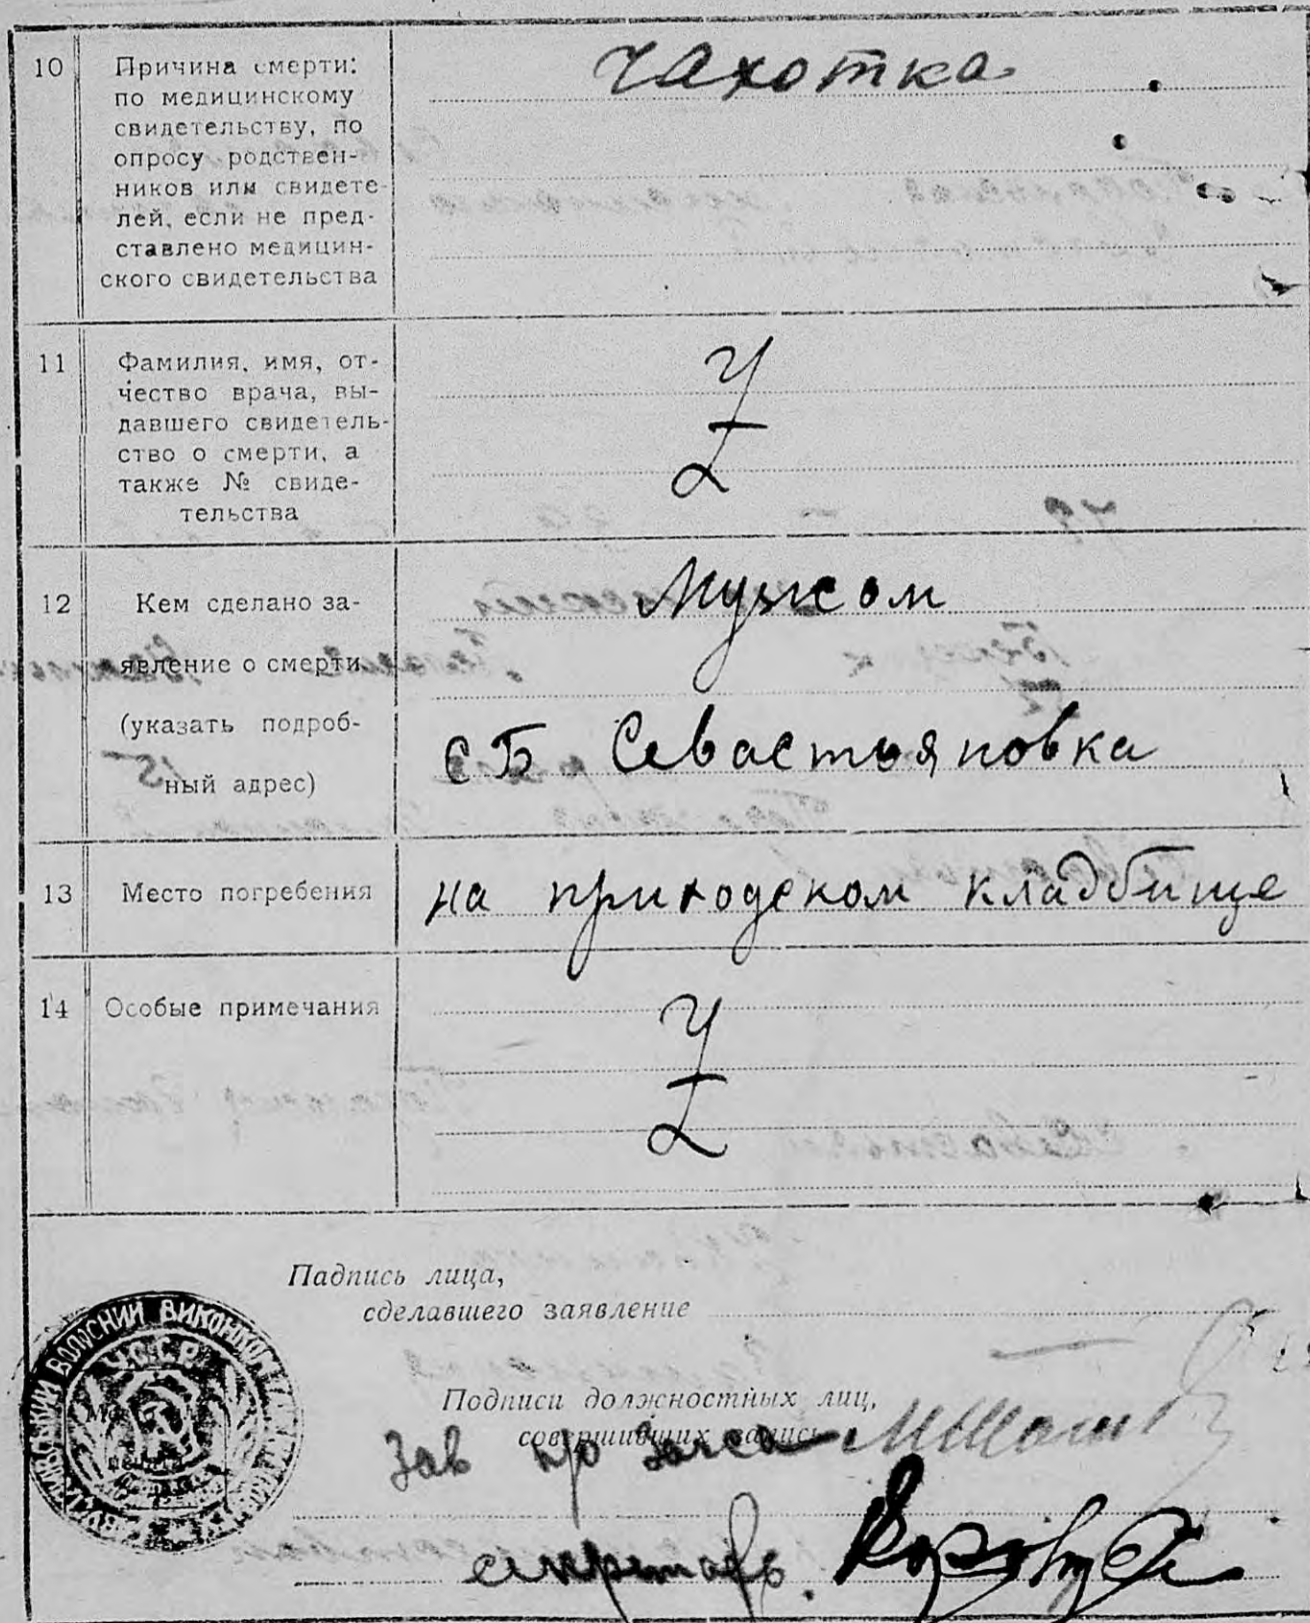 10
Причина смерти:
по медицинскому
свидетельству, по
опросу родствен-
ников или свидете-
лей, если не пред-
ставлено медицин-
ского свидетельства
Чахотка
11
Фамилия, имя, от-
чество врача, вы-
давшего свидетель-
ство о смерти, а
также № свиде-
тельства
12
Кем сделано за-
явление о смерти
(указать подроб-
ный адрес)
Мужом
СБ Севастьяновка
13
Место погребения
на приходском кладбище
14
Особые примечания
Падпись лица,
сделавшего заявление
Подписи должностных лиц,
совершивших запись
Зав загса
секретарь
ВОЛОСНИЙ ВИКОНКОМ
У.С.С.Р.